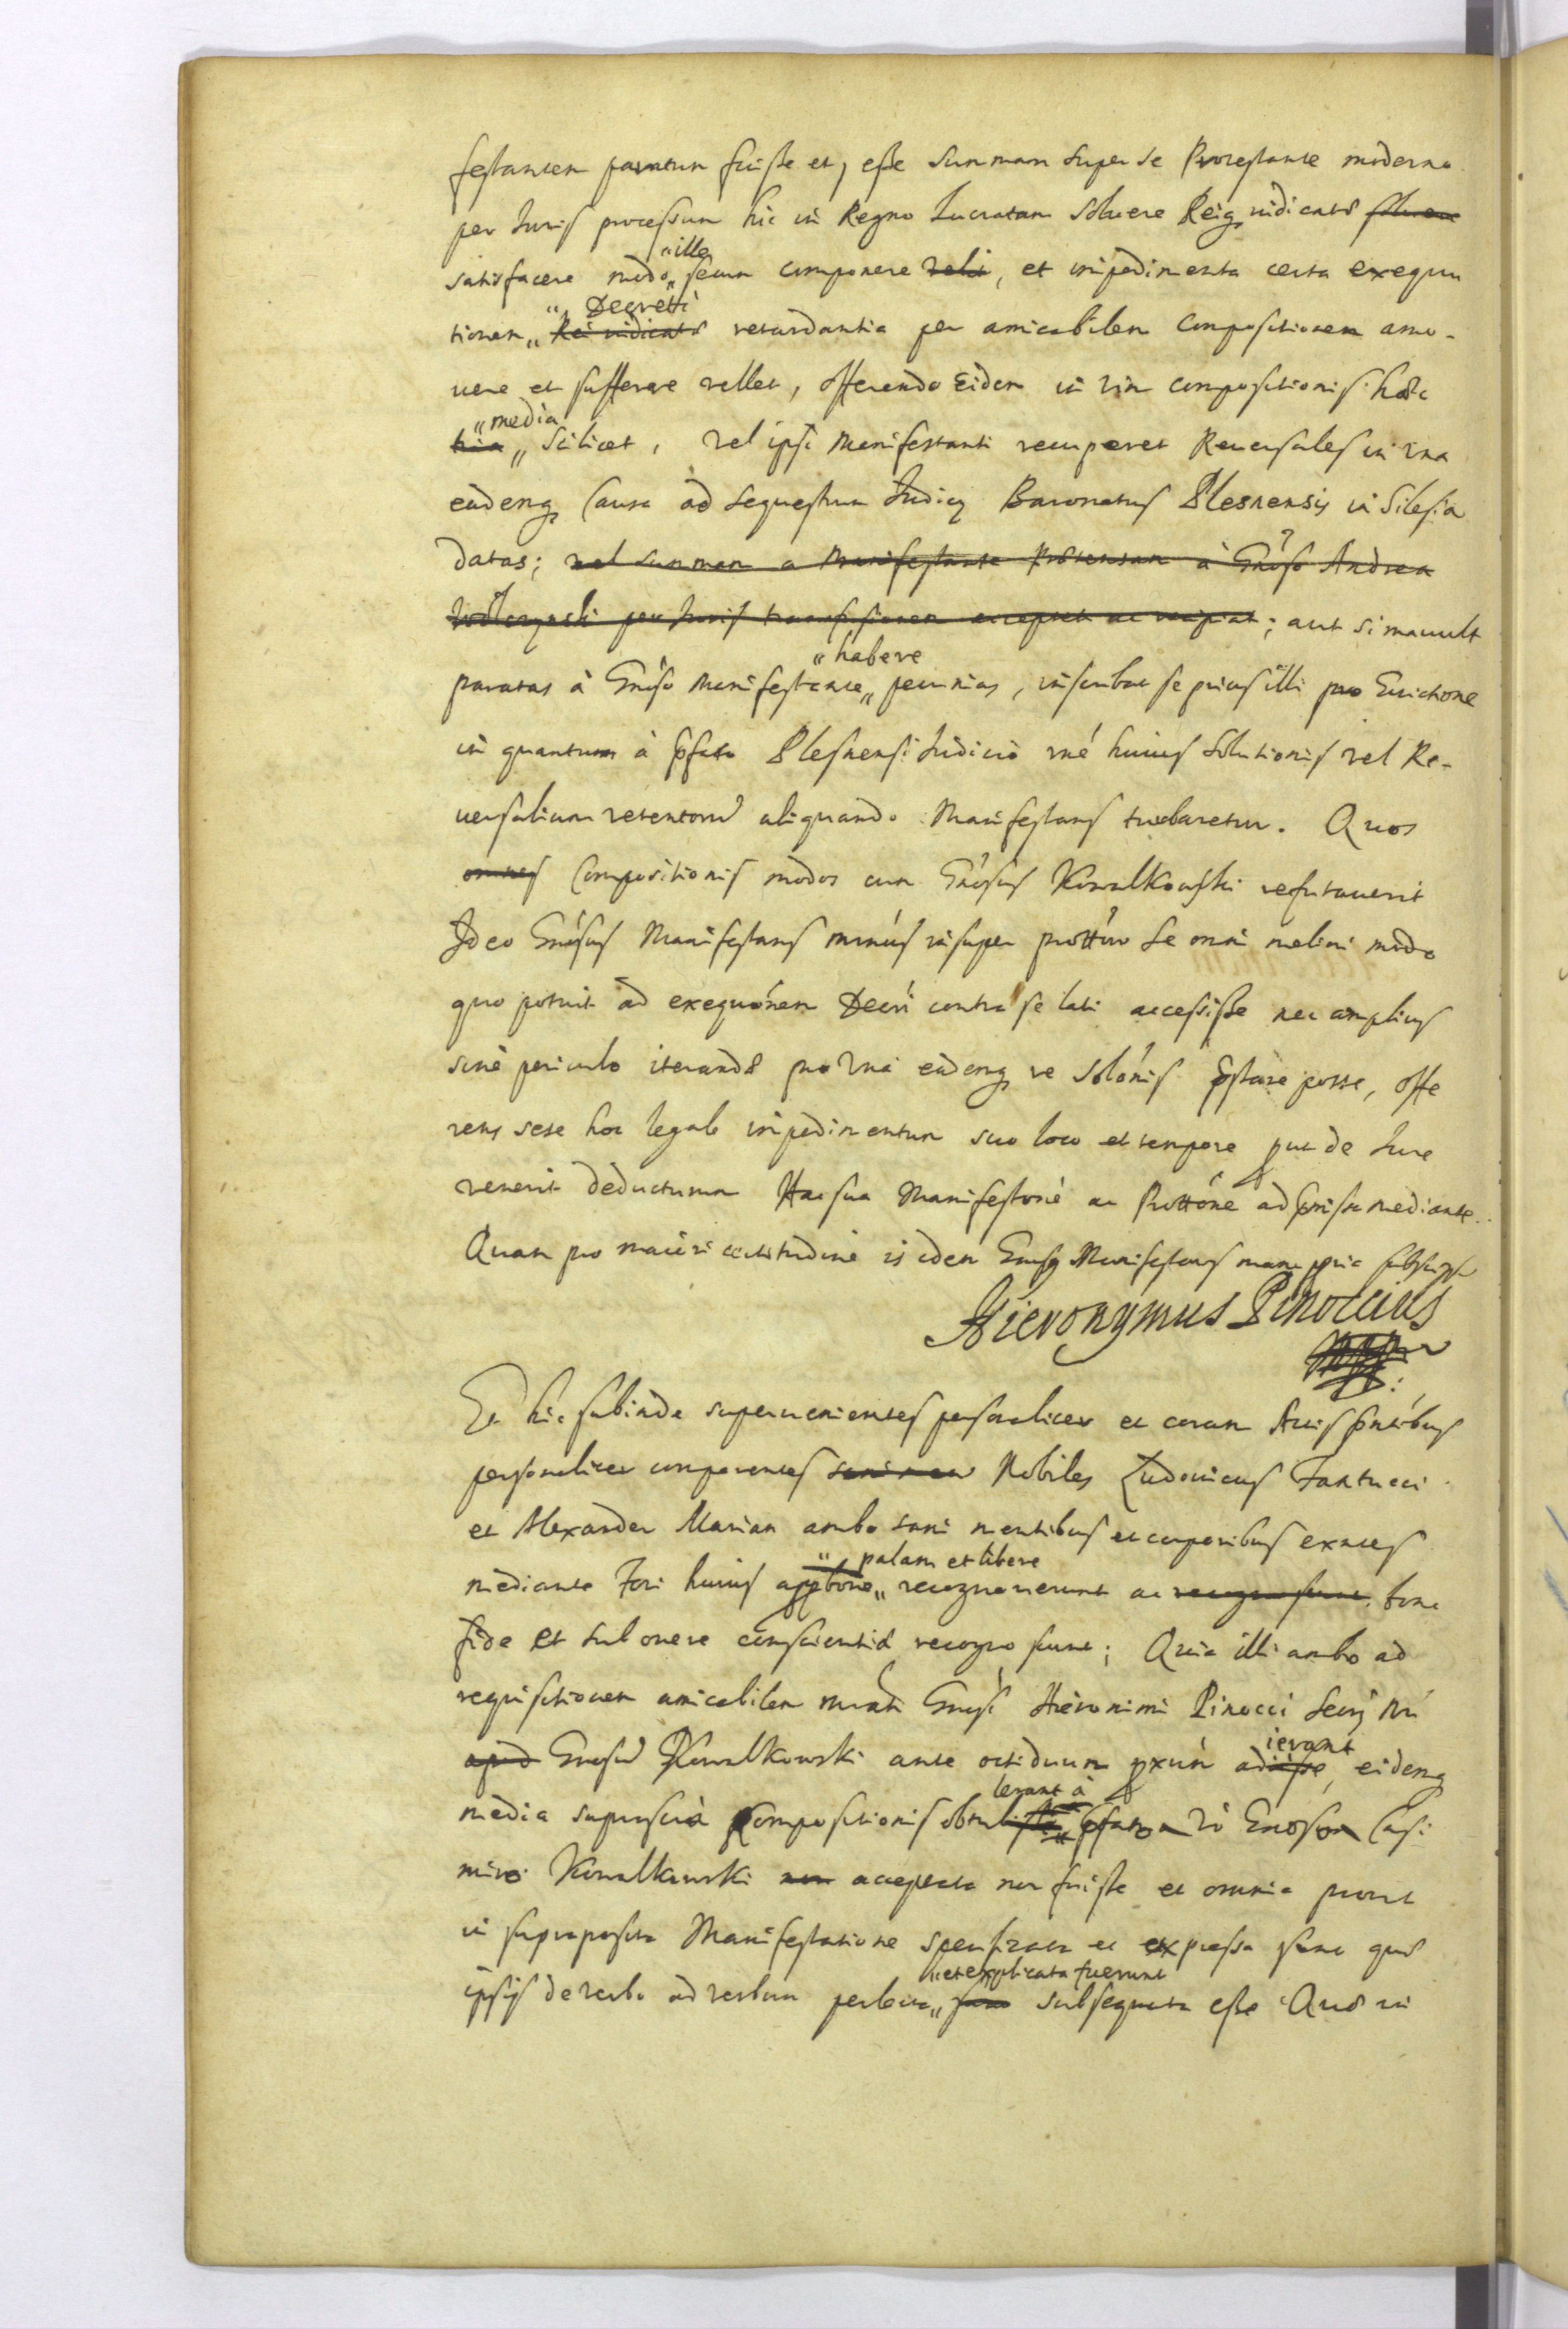 festantem paratum fuisse et, esse summam super se Protestante moderno
per Juris processum hic in Regno Lucratam soluere Reiq iudicatae soluere
satisfacere modo „ille„ secum componere velit, et impedimenta certa exequu
tionem „Decreti„ Rei iudicatae retardantia per amicabilem Compositionem amo-
uere et sufferre vellet, offerendo Eidem in vim compositionis haec
„media„ scilicet, vel ipsi Manifestanti recuperet Reuersales in vna
eademq Causa ad sequestrum Judicij Baronatus Plesnensis in Silesia
datas; vel summam a Manifestante praetensam à Gnoso Andrea
per Juris transfusionem acceptet ac recipiat; aut si mauult
paratas à Gnoso Manifestante „habere„ pecunias, inscribat se prius illi pro Euictione
in quantum à pfato Plesnensi Judicio rné huius solutionis vel Re-
uersalium retentorum aliquando Manifestans turbaretur. Quos
omnes Compositionis modos cum Gnosus Kowalkowski refutauerit
Ideo Gnosus Manifestans insuper se omni meliori modo
quo potuit ad exequónem Decri contra se lati accessisse nec amplius
sine periculo iterandae pro vna eademq re solónis pstare posse, offe
rens sese hoc legale impedimentum suo loco et tempore put de Jure
venerit deducturum Hac sua Manifestone ac Prottóne ad pmissa mediante.
Quam pro maiori certitudine is idem Gnosus Manifestans manu ppria subscripsit
Hieronymus Pinoccius
Et hic subinde superuenientes personaliter et coram Actis pntibus
personaliter comparentes Nobiles Ludouicus Fantucci
et Alexander Marian ambo sani mentibus et corporibus exntes
mediante Fori huius appbone „palam et libere„ recognouerunt ac recogno sunt. bona
fide et sub onere conscientiae recogno sunt; Quia illi ambo ad
requisitionem amicabilem Gnosi Hieronimi Pinocci Secrij
apud Gnosum Kowalkowski ante octiduum pxum adiisse ierant, eidemq
media suprascra Compositionis obtulisse lerant à pfato Gnoso Casi
miro Kowalkowski non acceptata non fuisse et omnia prout
in supraposita Manifestatione specificata et expressa sunt quae
ipsis de verbo ad verbum perlecta „et explicata fuerunt„ sunt subsequuta esse Quod in